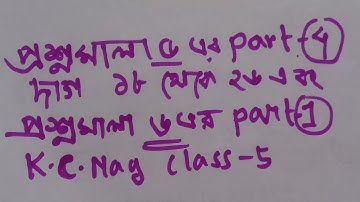 প্রশ্নমালা ৫ এর part-4
দাগ ১৮ থেকে ২৬ এবং
প্রশ্নমালা ৬ এর part-1
K.C.Nag class-5